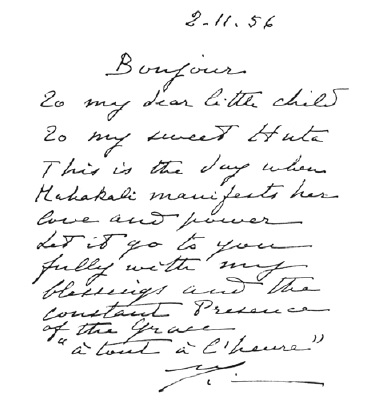 2-11-56
Bonjour
To my dear little child
To my sweet Huta
This is the day when
Mahakali manifests her
love and power
Let it go to you
fully with my
blessings and the
constant Presence
of the Grace
"à tout à l'heure"